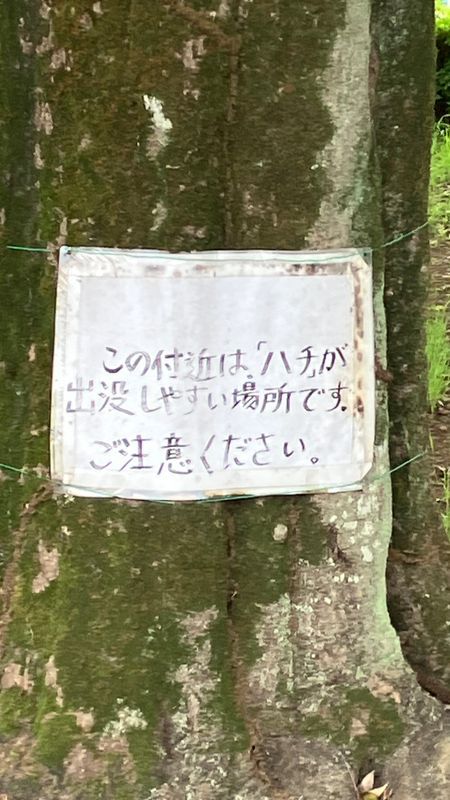 この付近は、「ハチ」が
出没しやすい場所です.
ご注意ください。